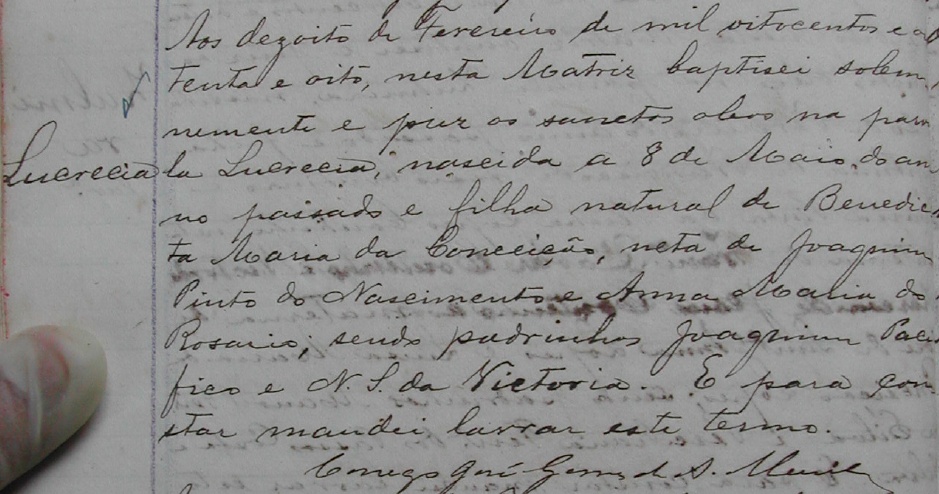 Aos dezoito de Fevereiro de mil oitocentos e oi
tenta e oito, nesta Matriz baptisei solem
nemente e puz os sanctos oleos na parvu
Lucrecia
la Lucrecia, nascida a 8 de Maio do an
no passado e filha natural de Benedic
ta Maria da Conceição, neta de Joaquim
Pinto do Nascimento e Anna Maria do
Rosario; sendo padrinhos Joaquim Paci
fico e N. S. da Victoria. E para con
star mandei lavrar este termo.
Conego José Gomes de A.